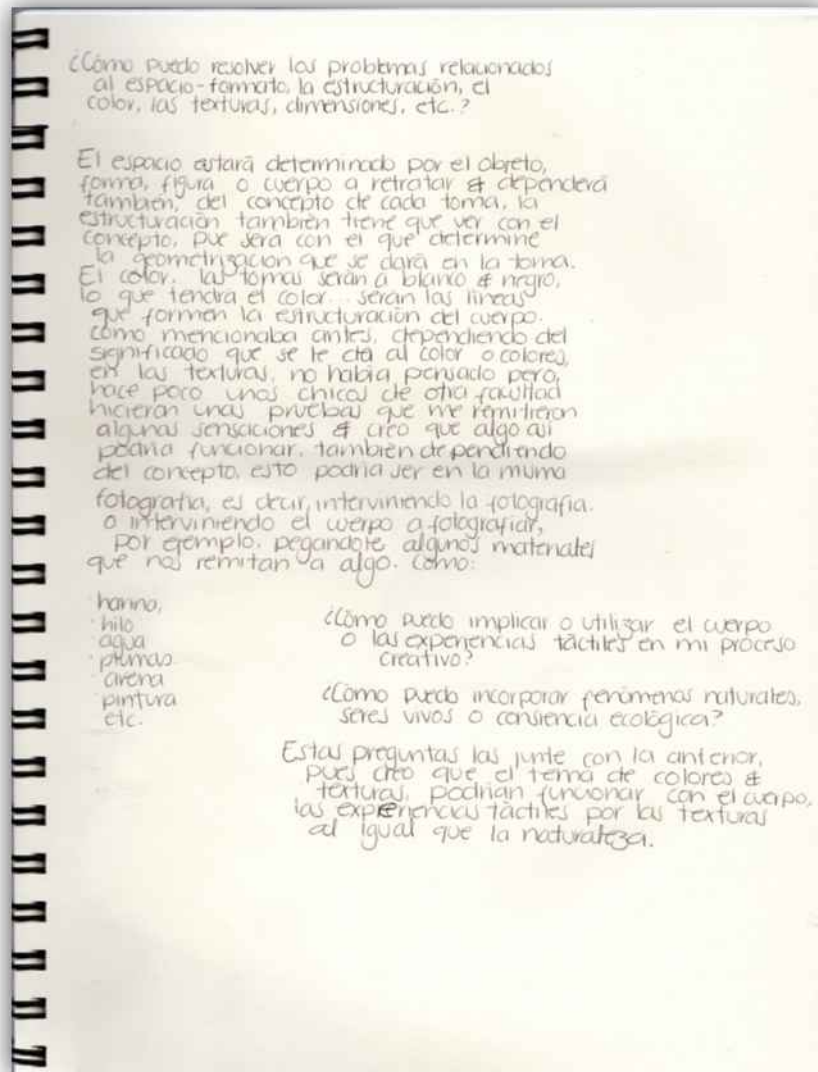 ¿Cómo puedo resolver los problemas relacionados
al espacio-formato, la estructuración, el
color, las texturas, dimensiones, etc.?
El espacio estará determinado por el objeto,
forma, figura o cuerpo a retratar & dependerá
también, del concepto de cada toma, la
estructuración también tiene que ver con el
concepto, pue será con el que determine
la geometrización que se dará en la toma.
El color, las tomas serán a blanco & negro,
lo que tendra el color... serán las líneas
que formen la estructuración del cuerpo.
como mencionaba antes, dependiendo del
significado que se le dá al color o colores,
en las texturas, no había pensado pero,
hace poco unos chicos de otra facultad
hicieron unas pruebas que me remitieron
algunas sensaciones & creo que algo así
podría funcionar, también dependiendo
del concepto, esto podría ser en la misma
fotografía, es decir, interviniendo la fotografía.
o interviniendo el cuerpo a fotografiar,
por ejemplo, pegandole algunos materiales
que nos remitan a algo. Como:
· harina,
· hilo
· agua
· plumas
· arena
· pintura
etc.
¿Cómo puedo implicar o utilizar el cuerpo
o las experiencias táctiles en mi proceso
creativo?
¿Cómo puedo incorporar fenómenos naturales,
seres vivos o consiencia ecológica?
Estas preguntas las junte con la anterior,
pues creo que el tema de colores &
texturas, podrían funcionar con el cuerpo,
las experiencias táctiles por las texturas
al igual que la naturaleza.